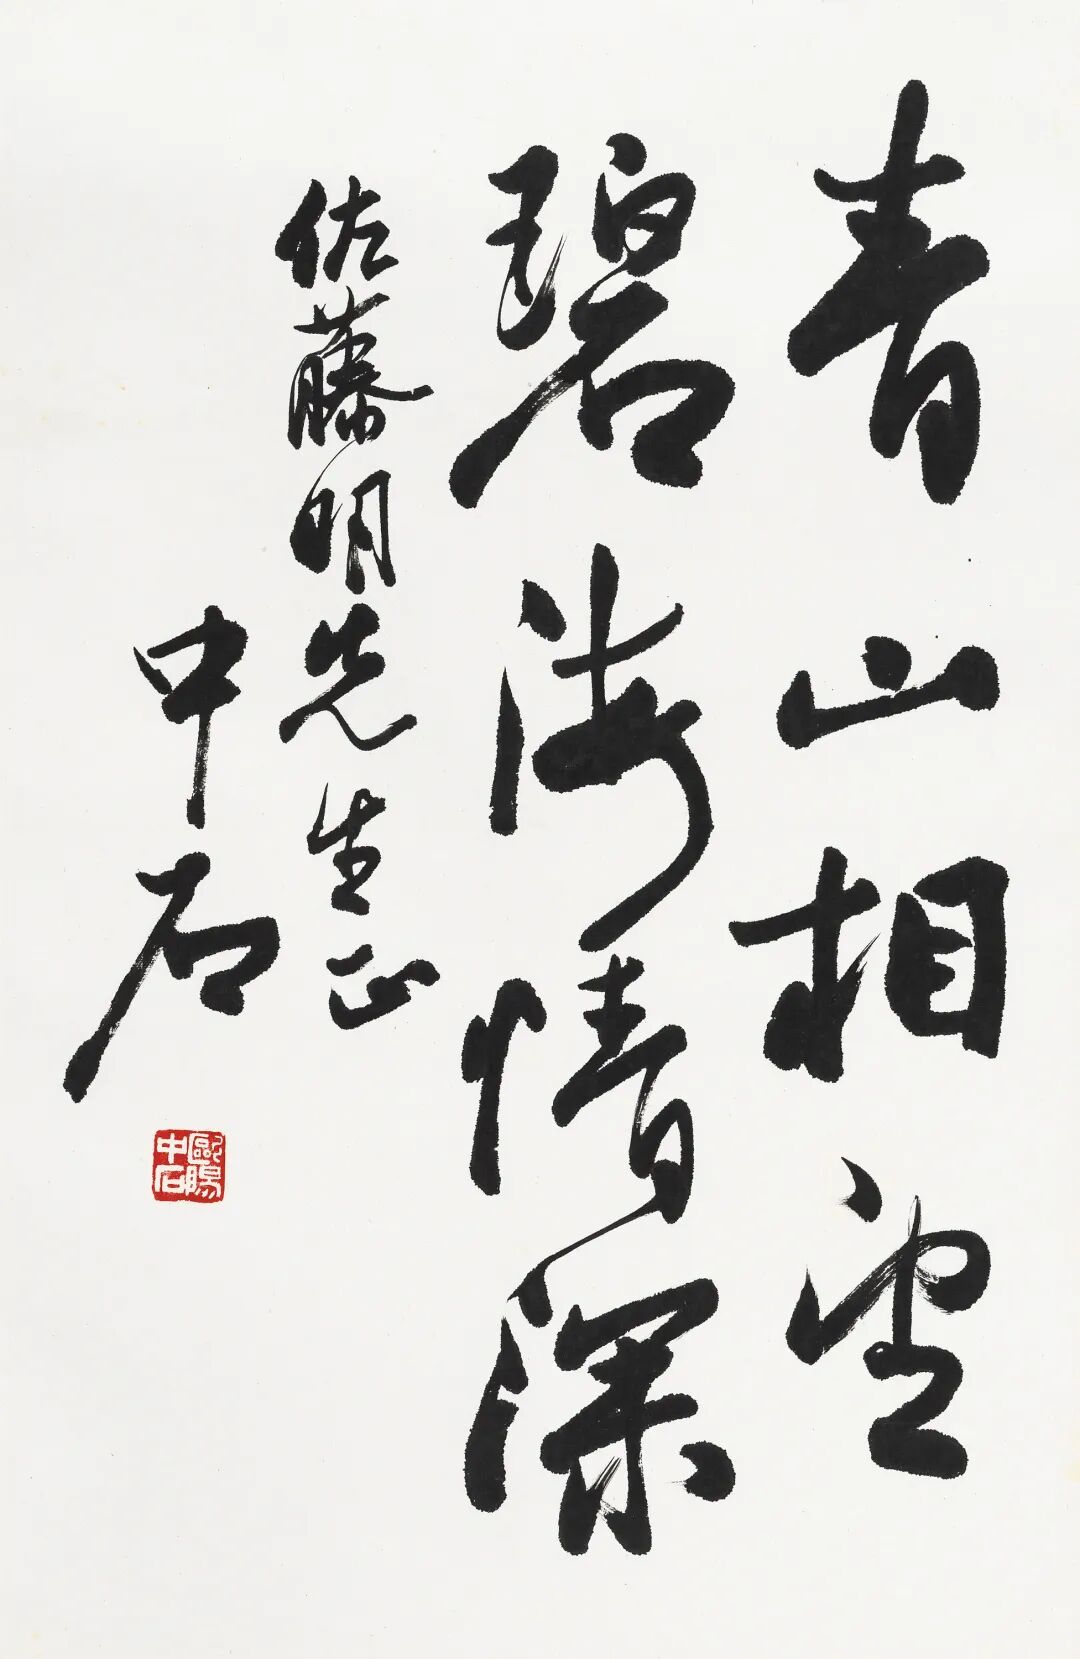 青山相望
碧海情深
佐藤明先生正
中石
歐陽
中石